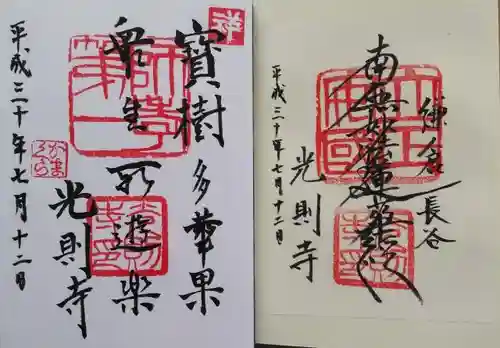 寶樹多華果
衆生所遊楽
光則寺
平成三十年七月十二日
祥
師孝第一
鎌倉長谷
南無妙法蓮華経
光則寺
平成三十年七月十二日